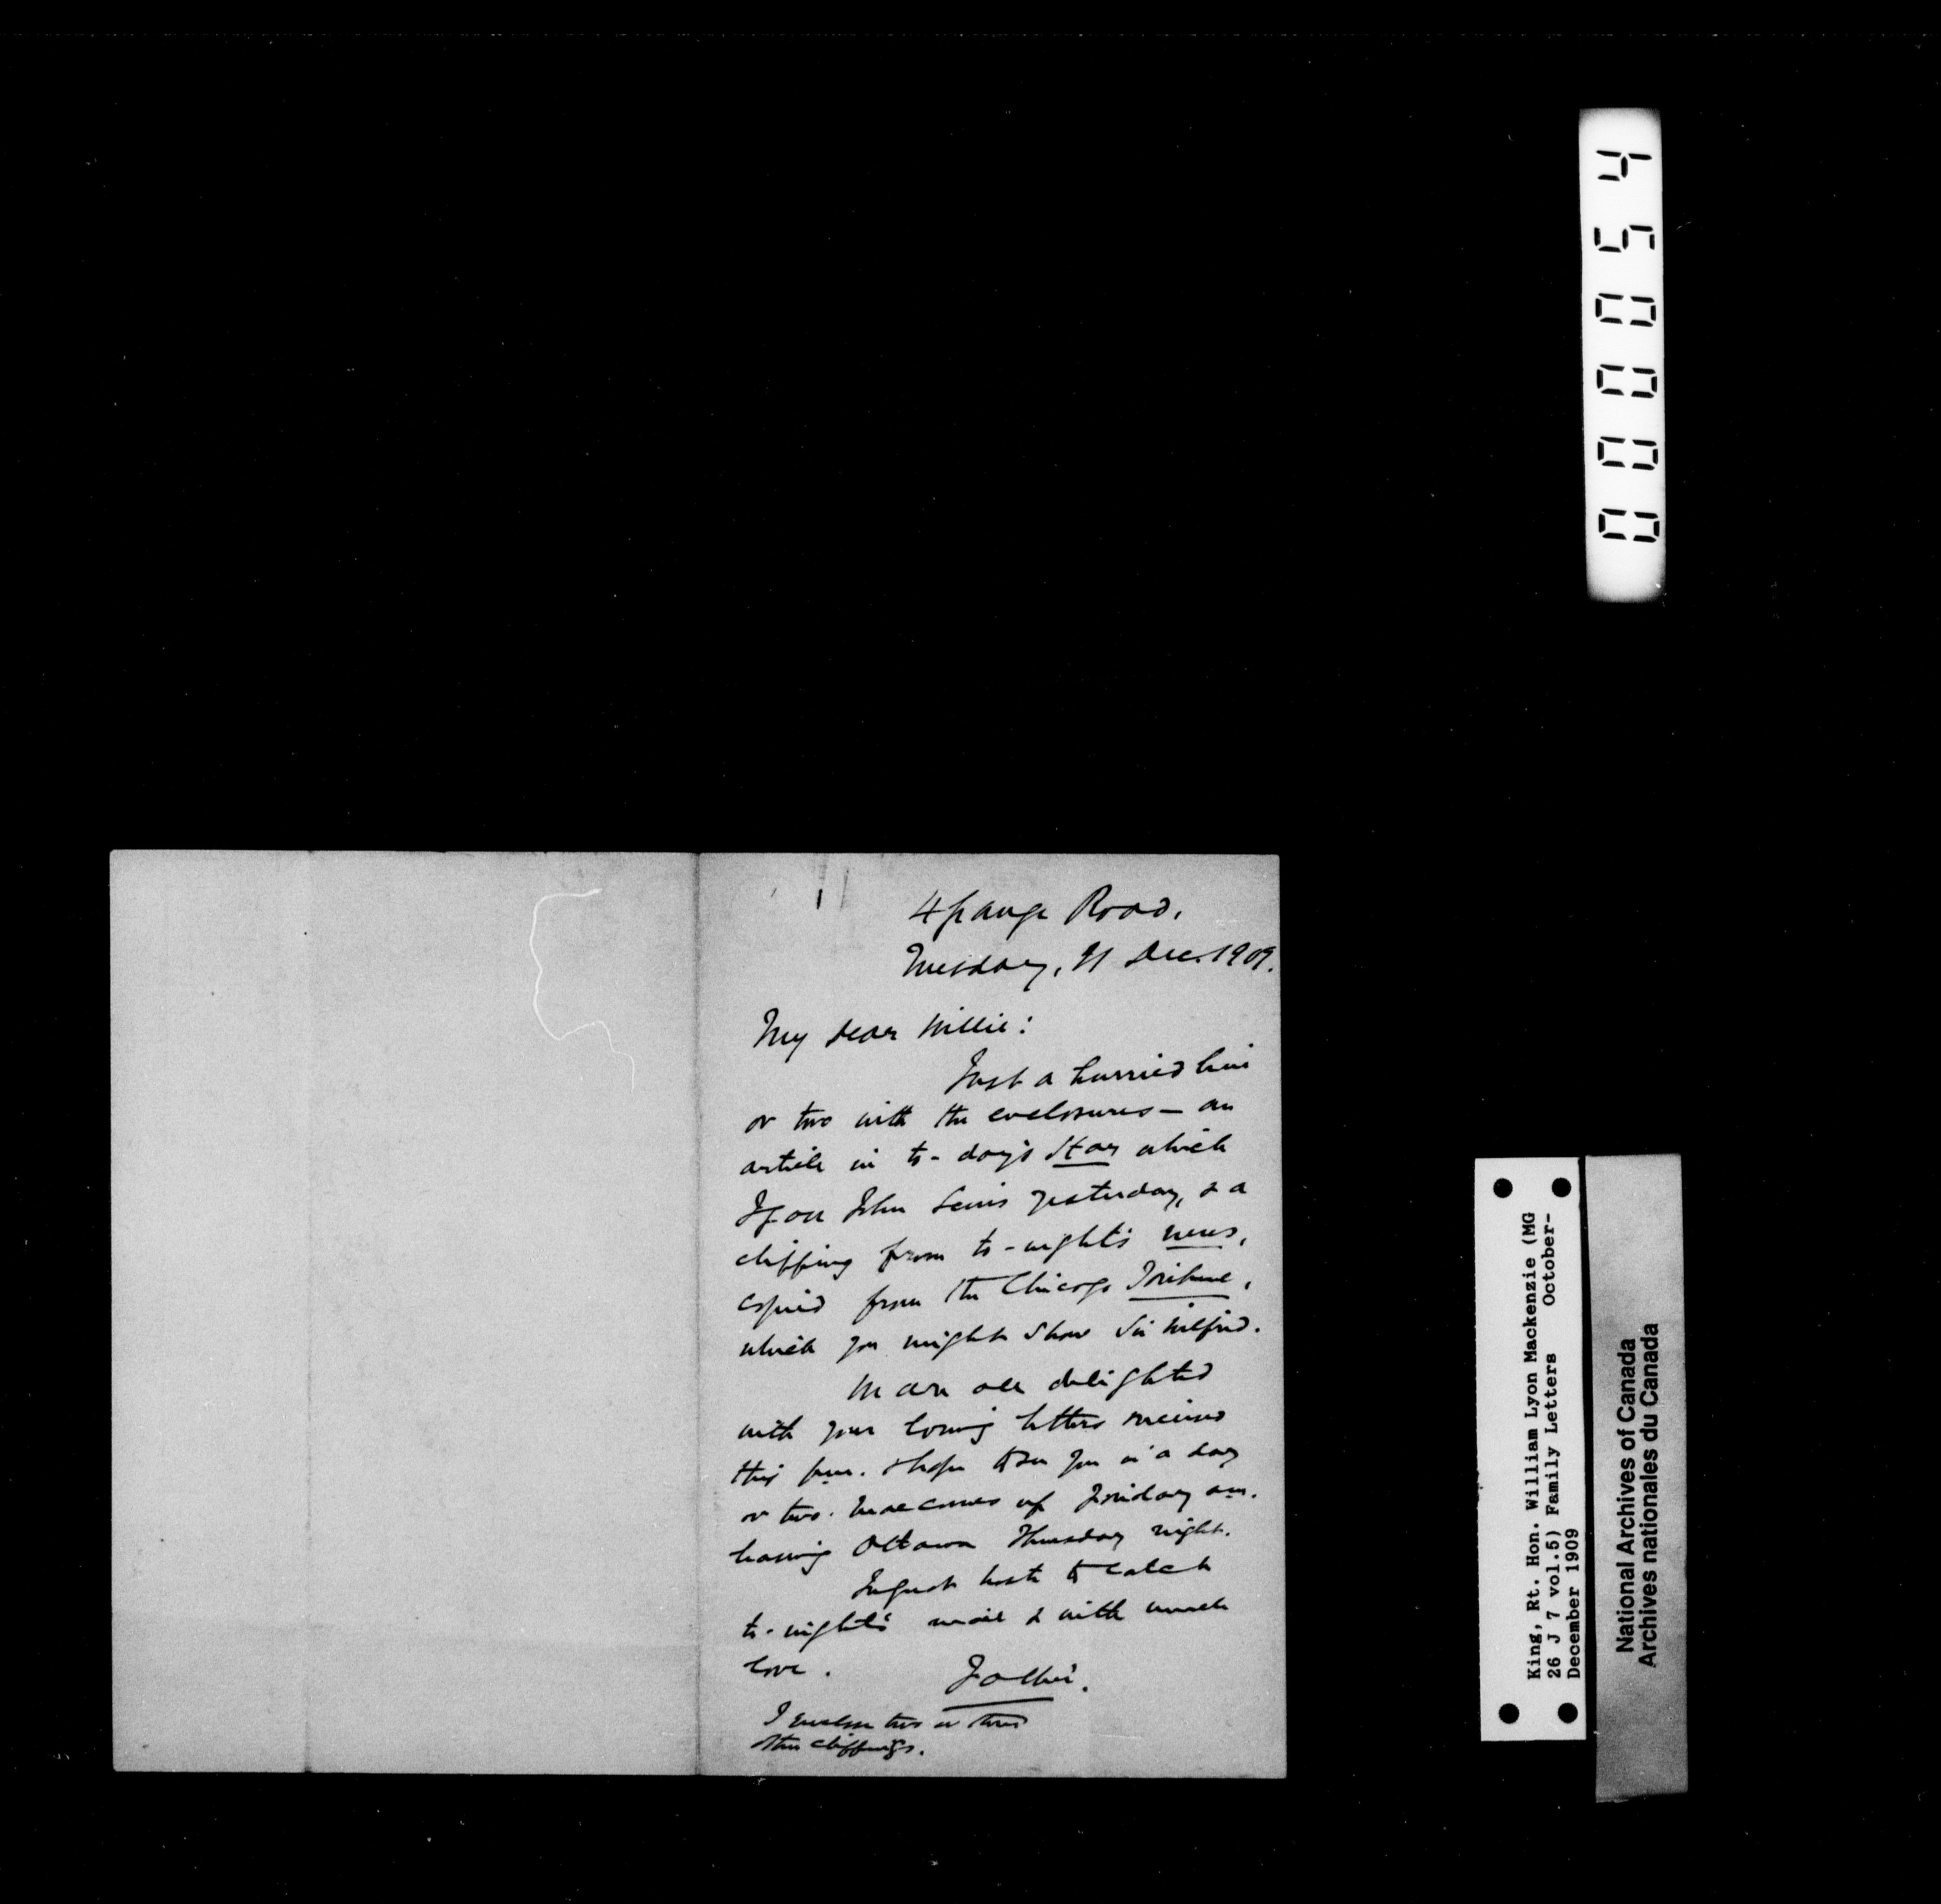 4 Grange Road,
Tuesday, 21 Dec. 1909.
My dear Willie:
Just a hurried line
or two with the enclosures — an
article in to-day's Star which
I gave John Lewis yesterday, & a
clipping from to-night's News,
copied from the Chicago Tribune,
which you might show Sir Wilfrid.
We are all delighted
with your loving letters received
this p.m. & hope to see you in a day
or two. comes up Friday a.m.
leaving Ottawa Thursday night.
In great haste to catch
to-night's mail & with much
love.
Father.
I enclose two or three
other clippings.
000054
King, Rt. Hon. William Lyon Mackenzie (MG
26 J 7 vol.5) Family Letters October-
December 1909
National Archives of Canada
Archives nationales du Canada